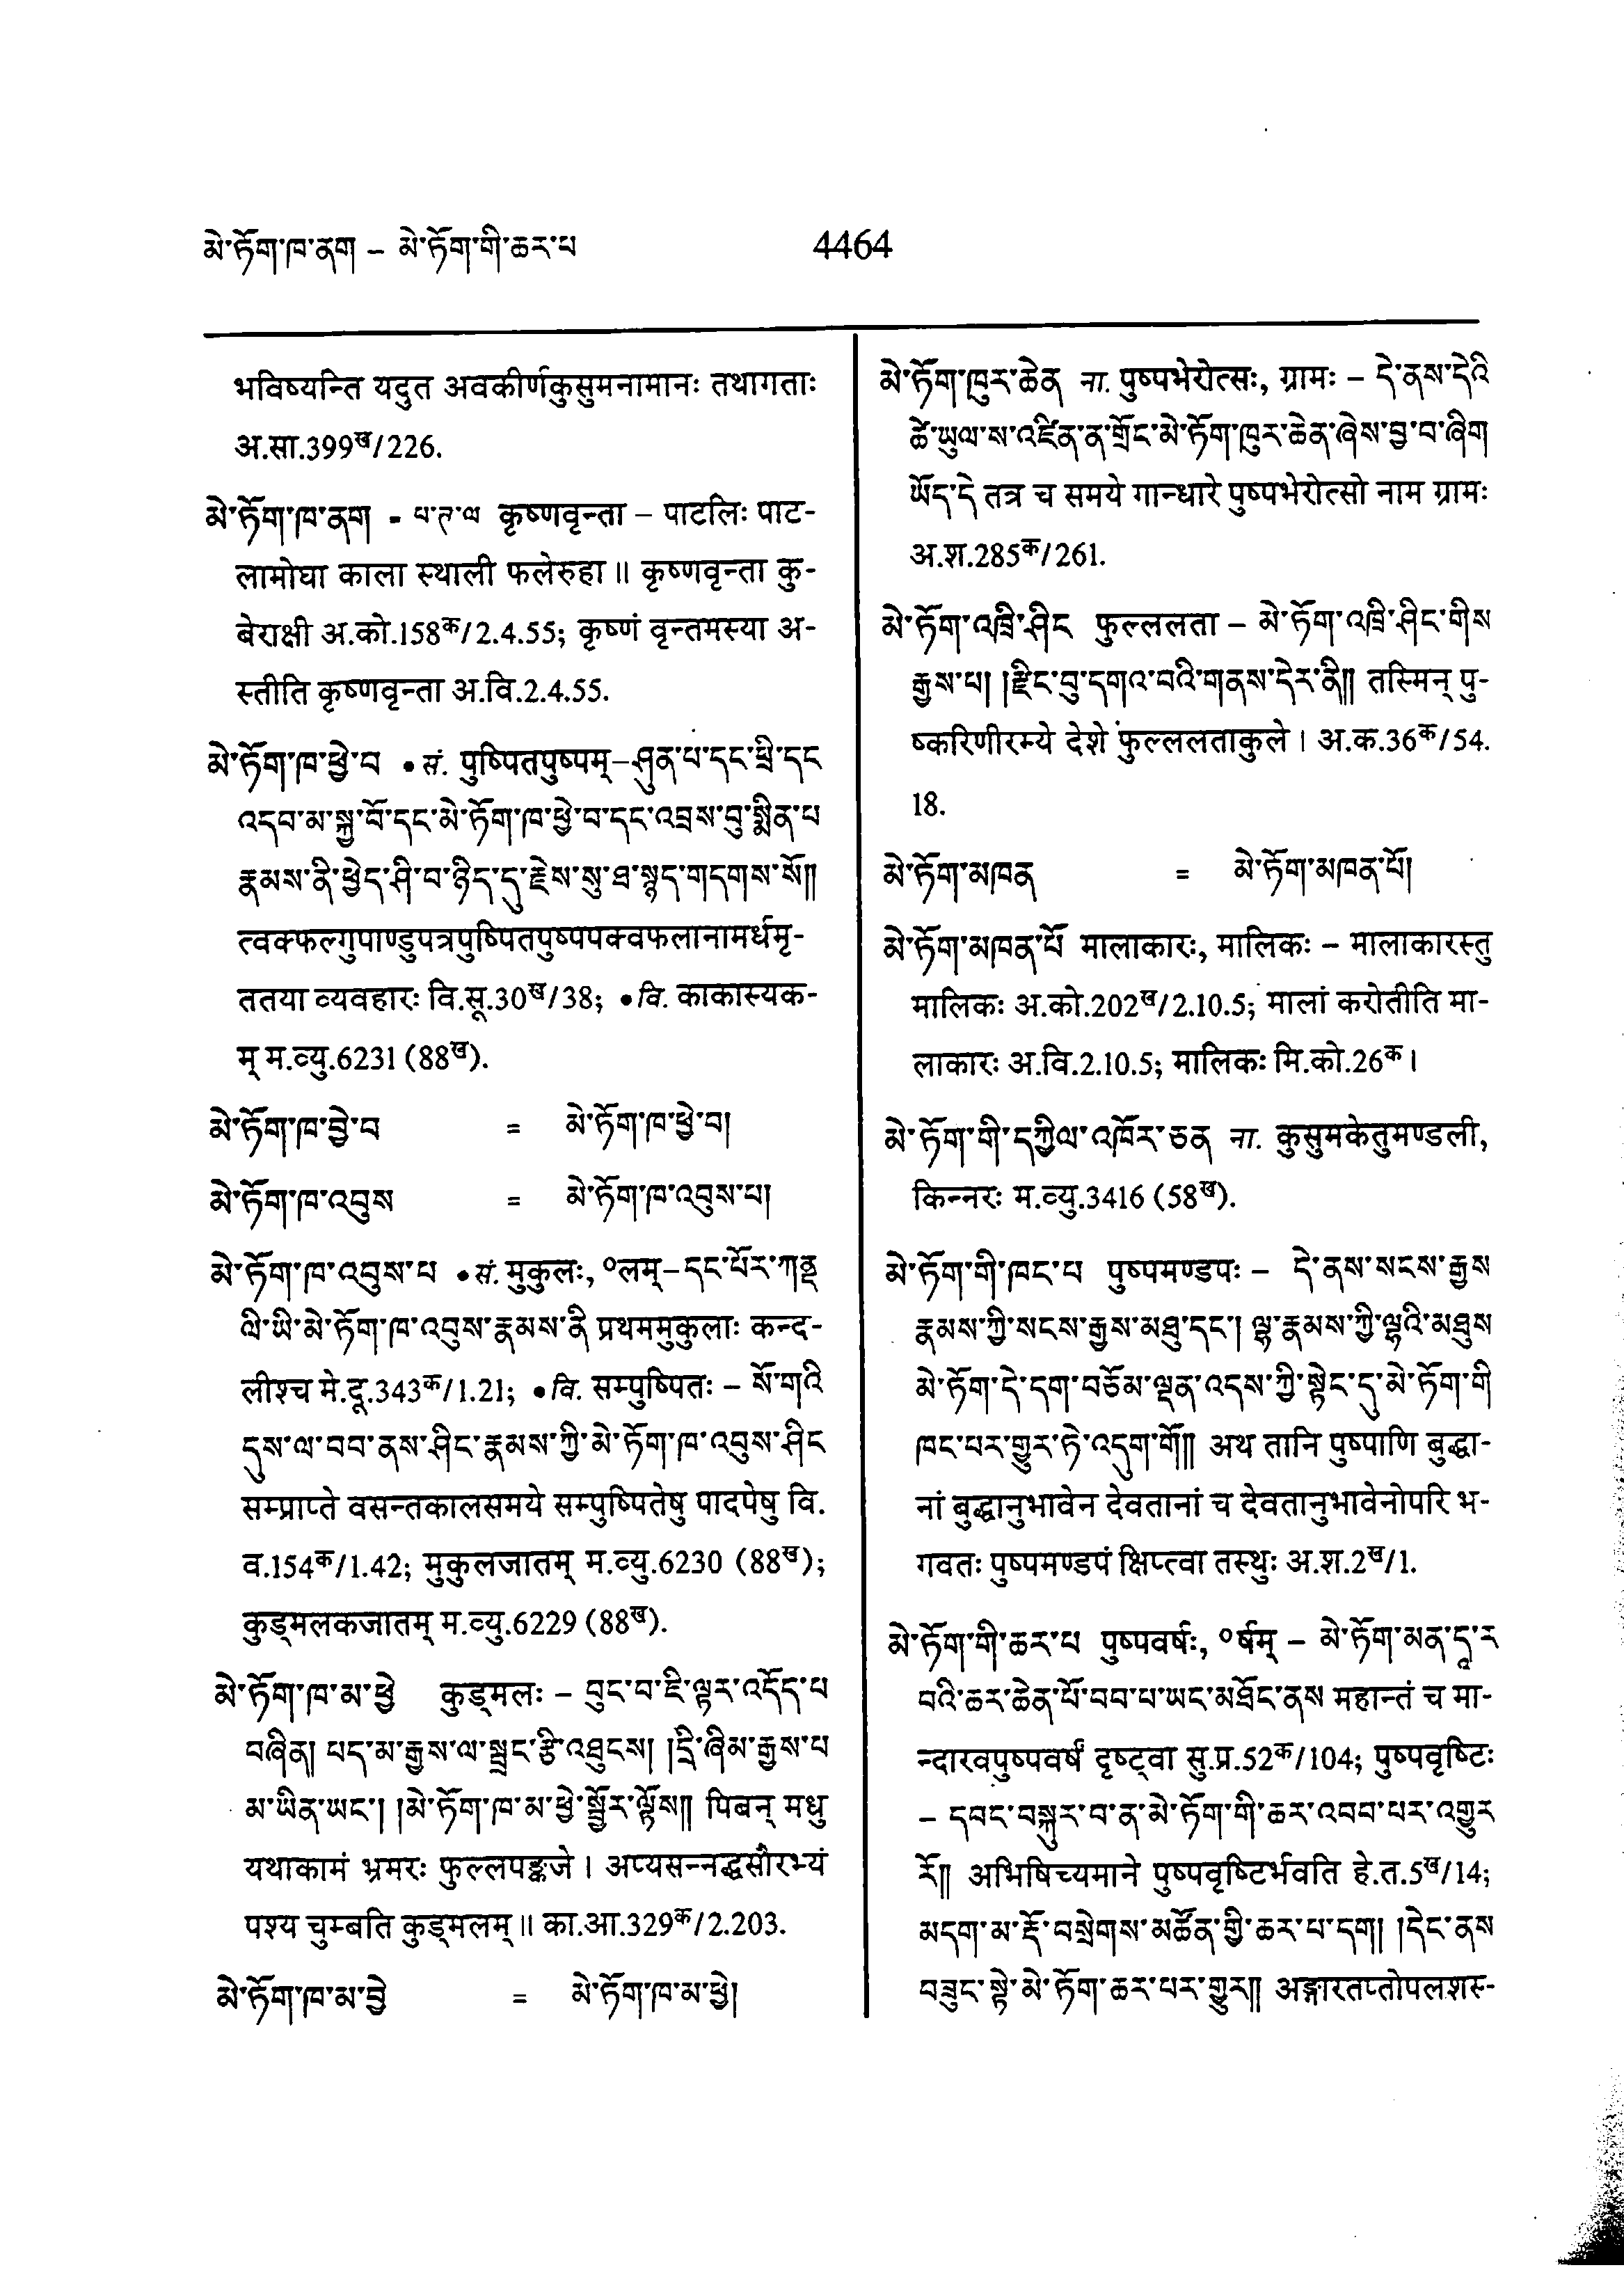 མེ་ཏོག་ཁ་ནག – མེ་ཏོག་གི་ཆར་པ
4464
भविष्यन्ति यदुत अवकीर्णकुसुमनामानः तथागताः
अ.सा.399ख/226.
མེ་ཏོག་ཁ་ནག - པ་ཊ་ལ कृष्णवृन्ता – पाटलिः पाट-
लामोघा काला स्थाली फलेरुहा ॥ कृष्णवृन्ता कु-
बेराक्षी अ.को.158क/2.4.55; कृष्णं वृन्तमस्या अ-
स्तीति कृष्णवृन्ता अ.वि.2.4.55.
མེ་ཏོག་ཁ་ཕྱེ་བ • सं. पुष्पितपुष्पम्–ཤུན་པ་དང་ཕྲི་དང
འདབ་མ་སྐྱ་བོ་དང་མེ་ཏོག་ཁ་ཕྱེ་བ་དང་འབྲས་བུ་སྨིན་པ
རྣམས་ནི་ཕྱེད་ཤི་བ་ཉིད་དུ་རྗེས་སུ་ཐ་སྙད་གདགས་སོ༎
त्वक्फल्गुपाण्डुपत्रपुष्पितपुष्पपक्वफलानामर्धमृ-
ततया व्यवहारः वि.सू.30ख/38; •वि. काकास्यक-
म् म.व्यु.6231 (88ख).
མེ་ཏོག་ཁ་བྱེ་བ = མེ་ཏོག་ཁ་ཕྱེ་བ།
མེ་ཏོག་ཁ་འབུས = མེ་ཏོག་ཁ་འབུས་པ།
མེ་ཏོག་ཁ་འབུས་པ •सं. मुकुलः, ०लम्–དང་པོར་ཀནྡ
ལི་ཡི་མེ་ཏོག་ཁ་འབུས་རྣམས་ནི प्रथममुकुलाः कन्द-
लीश्च मे.दू.343क/1.21; •वि. सम्पुष्पितः – སོ་གའི
དུས་ལ་བབ་ནས་ཤིང་རྣམས་ཀྱི་མེ་ཏོག་ཁ་འབུས་ཤིང
सम्प्राप्ते वसन्तकालसमये सम्पुष्पितेषु पादपेषु वि.
व.154क/1.42; मुकुलजातम् म.व्यु.6230 (88ख);
कुड्मलकजातम् म.व्यु.6229 (88ख).
མེ་ཏོག་ཁ་མ་ཕྱེ कुड्मलः – བུང་བ་ཇི་ལྟར་འདོད་པ
བཞིན། པད་མ་རྒྱས་ལ་སྦྲང་རྩི་འཐུངས། །དྲི་ཞིམ་རྒྱས་པ
མ་ཡིན་ཡང་། །མེ་ཏོག་ཁ་མ་ཕྱེ་སྦྱོར་ལྟོས༎ पिबन् मधु
यथाकामं भ्रमरः फुल्लपङ्कजे । अप्यसन्नद्धसौरभ्यं
पश्य चुम्बति कुड्मलम् ॥ का.आ.329क/2.203.
མེ་ཏོག་ཁ་མ་བྱེ = མེ་ཏོག་ཁ་མ་ཕྱེ།
མེ་ཏོག་ཁུར་ཆེན ना. पुष्पभेरोत्सः, ग्रामः – དེ་ནས་དེའི
ཚེ་ཡུལ་ས་འཛིན་ན་གྲོང་མེ་ཏོག་ཁུར་ཆེན་ཞེས་བྱ་བ་ཞིག
ཡོད་དེ तत्र च समये गान्धारे पुष्पभेरोत्सो नाम ग्रामः
अ.श.285क/261.
མེ་ཏོག་འཁྲི་ཤིང फुल्ललता – མེ་ཏོག་འཁྲི་ཤིང་གིས
རྒྱས་པ། །རྫིང་བུ་དགའ་བའི་གནས་དེར་ནི༎ तस्मिन् पु-
ष्करिणीरम्ये देशे फुल्ललताकुले । अ.क.36क/54.
18.
མེ་ཏོག་མཁན = མེ་ཏོག་མཁན་པོ།
མེ་ཏོག་མཁན་པོ मालाकारः, मालिकः – मालाकारस्तु
मालिकः अ.को.202ख/2.10.5; मालां करोतीति मा-
लाकारः अ.वि.2.10.5; मालिकः मि.को.26क ।
མེ་ཏོག་གི་དཀྱིལ་འཁོར་ཅན ना. कुसुमकेतुमण्डली,
किन्नरः म.व्यु.3416 (58ख).
མེ་ཏོག་གི་ཁང་པ पुष्पमण्डपः – དེ་ནས་སངས་རྒྱས
རྣམས་ཀྱི་སངས་རྒྱས་མཐུ་དང་། ལྷ་རྣམས་ཀྱི་ལྷའི་མཐུས
མེ་ཏོག་དེ་དག་བཅོམ་ལྡན་འདས་ཀྱི་སྟེང་དུ་མེ་ཏོག་གི
ཁང་པར་གྱུར་ཏེ་འདུག་གོ༎ अथ तानि पुष्पाणि बुद्धा-
नां बुद्धानुभावेन देवतानां च देवतानुभावेनोपरि भ-
गवतः पुष्पमण्डपं क्षिप्त्वा तस्थुः अ.श.2ख/1.
མེ་ཏོག་གི་ཆར་པ पुष्पवर्षः, ०र्षम् – མེ་ཏོག་མན་དཱ་ར
བའི་ཆར་ཆེན་པོ་བབ་པ་ཡང་མཐོང་ནས महान्तं च मा-
न्दारवपुष्पवर्षं दृष्ट्वा सु.प्र.52क/104; पुष्पवृष्टिः
– དབང་བསྐུར་བ་ན་མེ་ཏོག་གི་ཆར་འབབ་པར་འགྱུར
རོ༎ अभिषिच्यमाने पुष्पवृष्टिर्भवति हे.त.5ख/14;
མདག་མ་རྡོ་བསྲེགས་མཚོན་གྱི་ཆར་པ་དག། །དེང་ནས
བཟུང་སྟེ་མེ་ཏོག་ཆར་པར་གྱུར༎ अङ्गारतप्तोपलशस्-